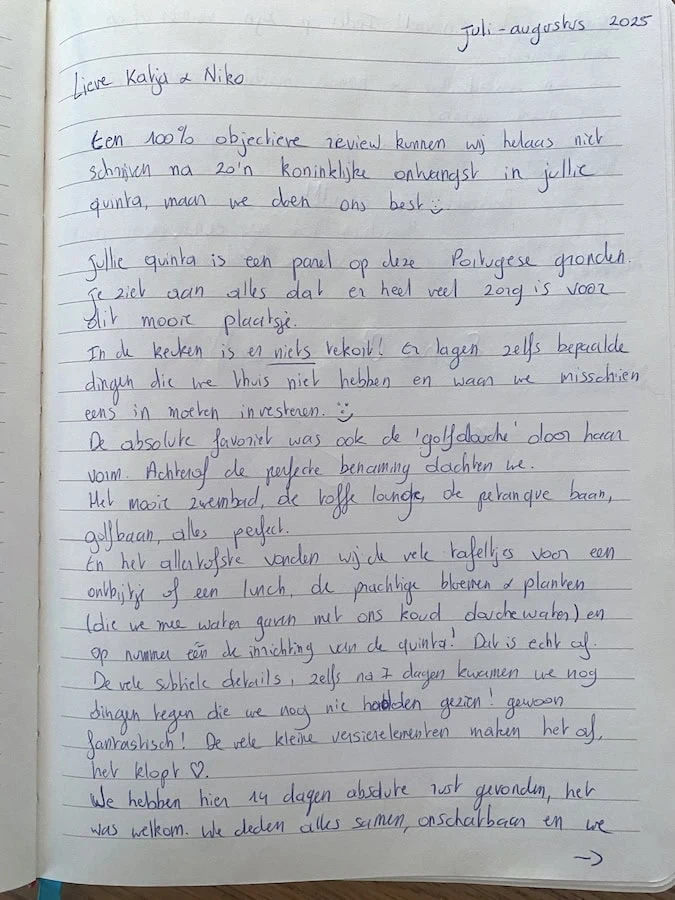 Juli - augustus 2025
Lieve Katja & Niko
Een 100% objectieve review kunnen wij helaas niet
schrijven na zo'n koninklijke ontvangst in jullie
quinta, maar we doen ons best :)
Jullie quinta is een parel op deze Portugese gronden.
Je ziet aan alles dat er heel veel zorg is voor
dit mooie plaatsje.
In de keuken is er niets tekort! Er lagen zelfs bepaalde
dingen die we thuis niet hebben en waar we misschien
eens in moeten investeren. :)
De absolute favoriet was ook de 'golfdouche' door haar
vorm. Achteraf de perfecte benaming dachten we.
Het mooie zwembad, de toffe lounge, de petanque baan,
golfbaan, alles perfect.
En het allertofste vonden wij de vele tafeltjes voor een
ontbijtje of een lunch, de prachtige bloemen & planten
(die we mee water gaven met ons koud douchewater) en
op nummer één de inrichting van de quinta! Dat is echt af.
De vele subtiele details, zelfs na 7 dagen kwamen we nog
dingen tegen die we nog nie hadden gezien! gewoon
fantastisch! De vele kleine versierelementen maken het af,
het klopt ♡.
We hebben hier 14 dagen absolute rust gevonden, het
was welkom. We deden alles samen, onschatbaar en we
→